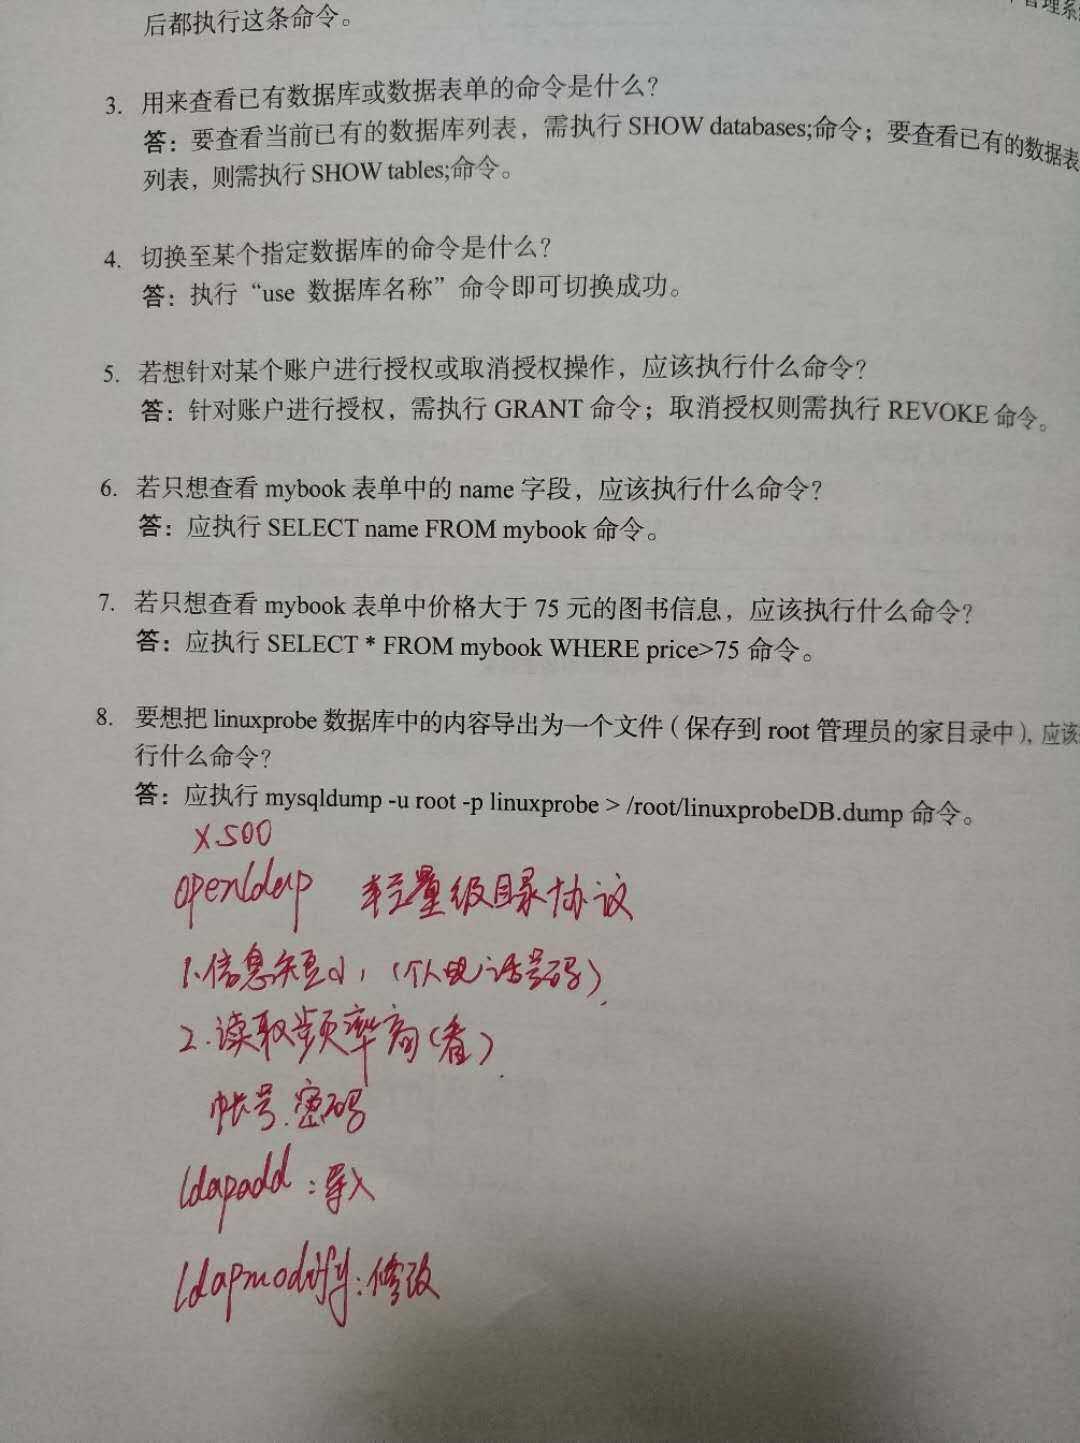 管理系
后都执行这条命令。
3. 用来查看已有数据库或数据表单的命令是什么？
答：要查看当前已有的数据库列表，需执行 SHOW databases;命令；要查看已有的数据表
列表，则需执行 SHOW tables;命令。
4. 切换至某个指定数据库的命令是什么？
答：执行“use 数据库名称”命令即可切换成功。
5. 若想针对某个账户进行授权或取消授权操作，应该执行什么命令？
答：针对账户进行授权，需执行 GRANT 命令；取消授权则需执行 REVOKE 命令。
6. 若只想查看 mybook 表单中的 name 字段，应该执行什么命令？
答：应执行 SELECT name FROM mybook 命令。
7. 若只想查看 mybook 表单中价格大于 75 元的图书信息，应该执行什么命令？
答：应执行 SELECT * FROM mybook WHERE price>75 命令。
8. 要想把 linuxprobe 数据库中的内容导出为一个文件（保存到 root 管理员的家目录中），应该
行什么命令？
答：应执行 mysqldump -u root -p linuxprobe > /root/linuxprobeDB.dump 命令。
X.500
openldap 轻量级目录协议
1.信息短小，（个人电话号码）
2.读取频率高（看）
帐号.密码
ldapadd：导入
ldapmodify：修改